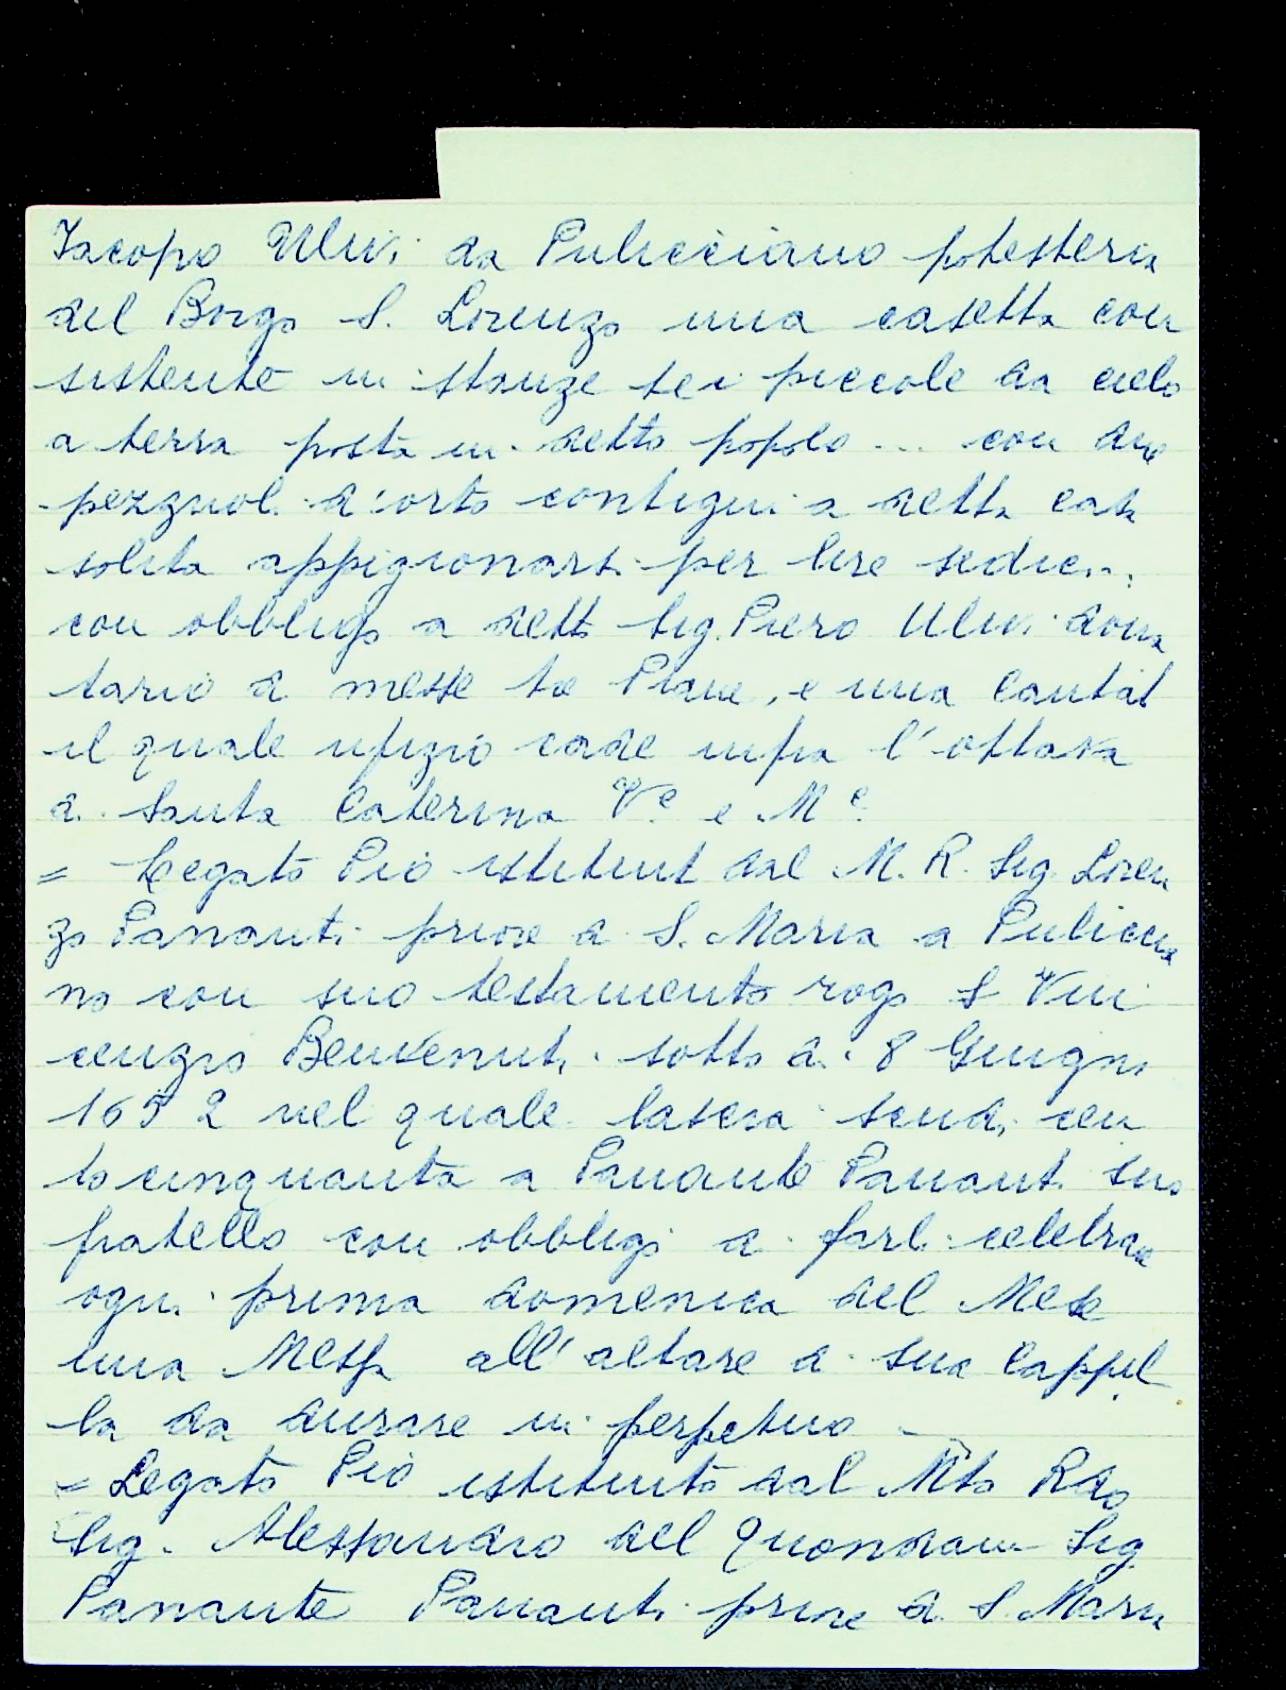 Iacopo Ulivi da Pulicciano potesteria
del Borgo S. Lorenzo una casetta con
sistente in stanze sei piccole da cielo
a terra posta in detto popolo ... con due
pezzuoli d'orto contigui a detta casa
solita appigionarsi per lire sedici..
con obbligo a detto Sig. Piero Ulivi dona
tario di messe tre Piane, e una Cantat
il quale ufizio cade infra l'ottava
di Santa Caterina V.e e M.e
= Legato Pio istituit dal M. R. Sig. Loren
zo Pananti priore di S. Maria a Pulicia
no con suo testamento rogo S Vin
cenzio Benvenuti sotto di 8 Giugno
1652 nel quale lascia scudi cen
tocinquanta a Panante Pananti suo
fratello con obbligo di farli celebrare
ogni prima domenica del Mese
una Messa all'altare di sua Cappel
la da durare in perpetuo -
= Legato Pio istituito dal Mto Rdo
Sig. Alessandro del Quondam Sig.
Panante Pananti priore di S. Maria